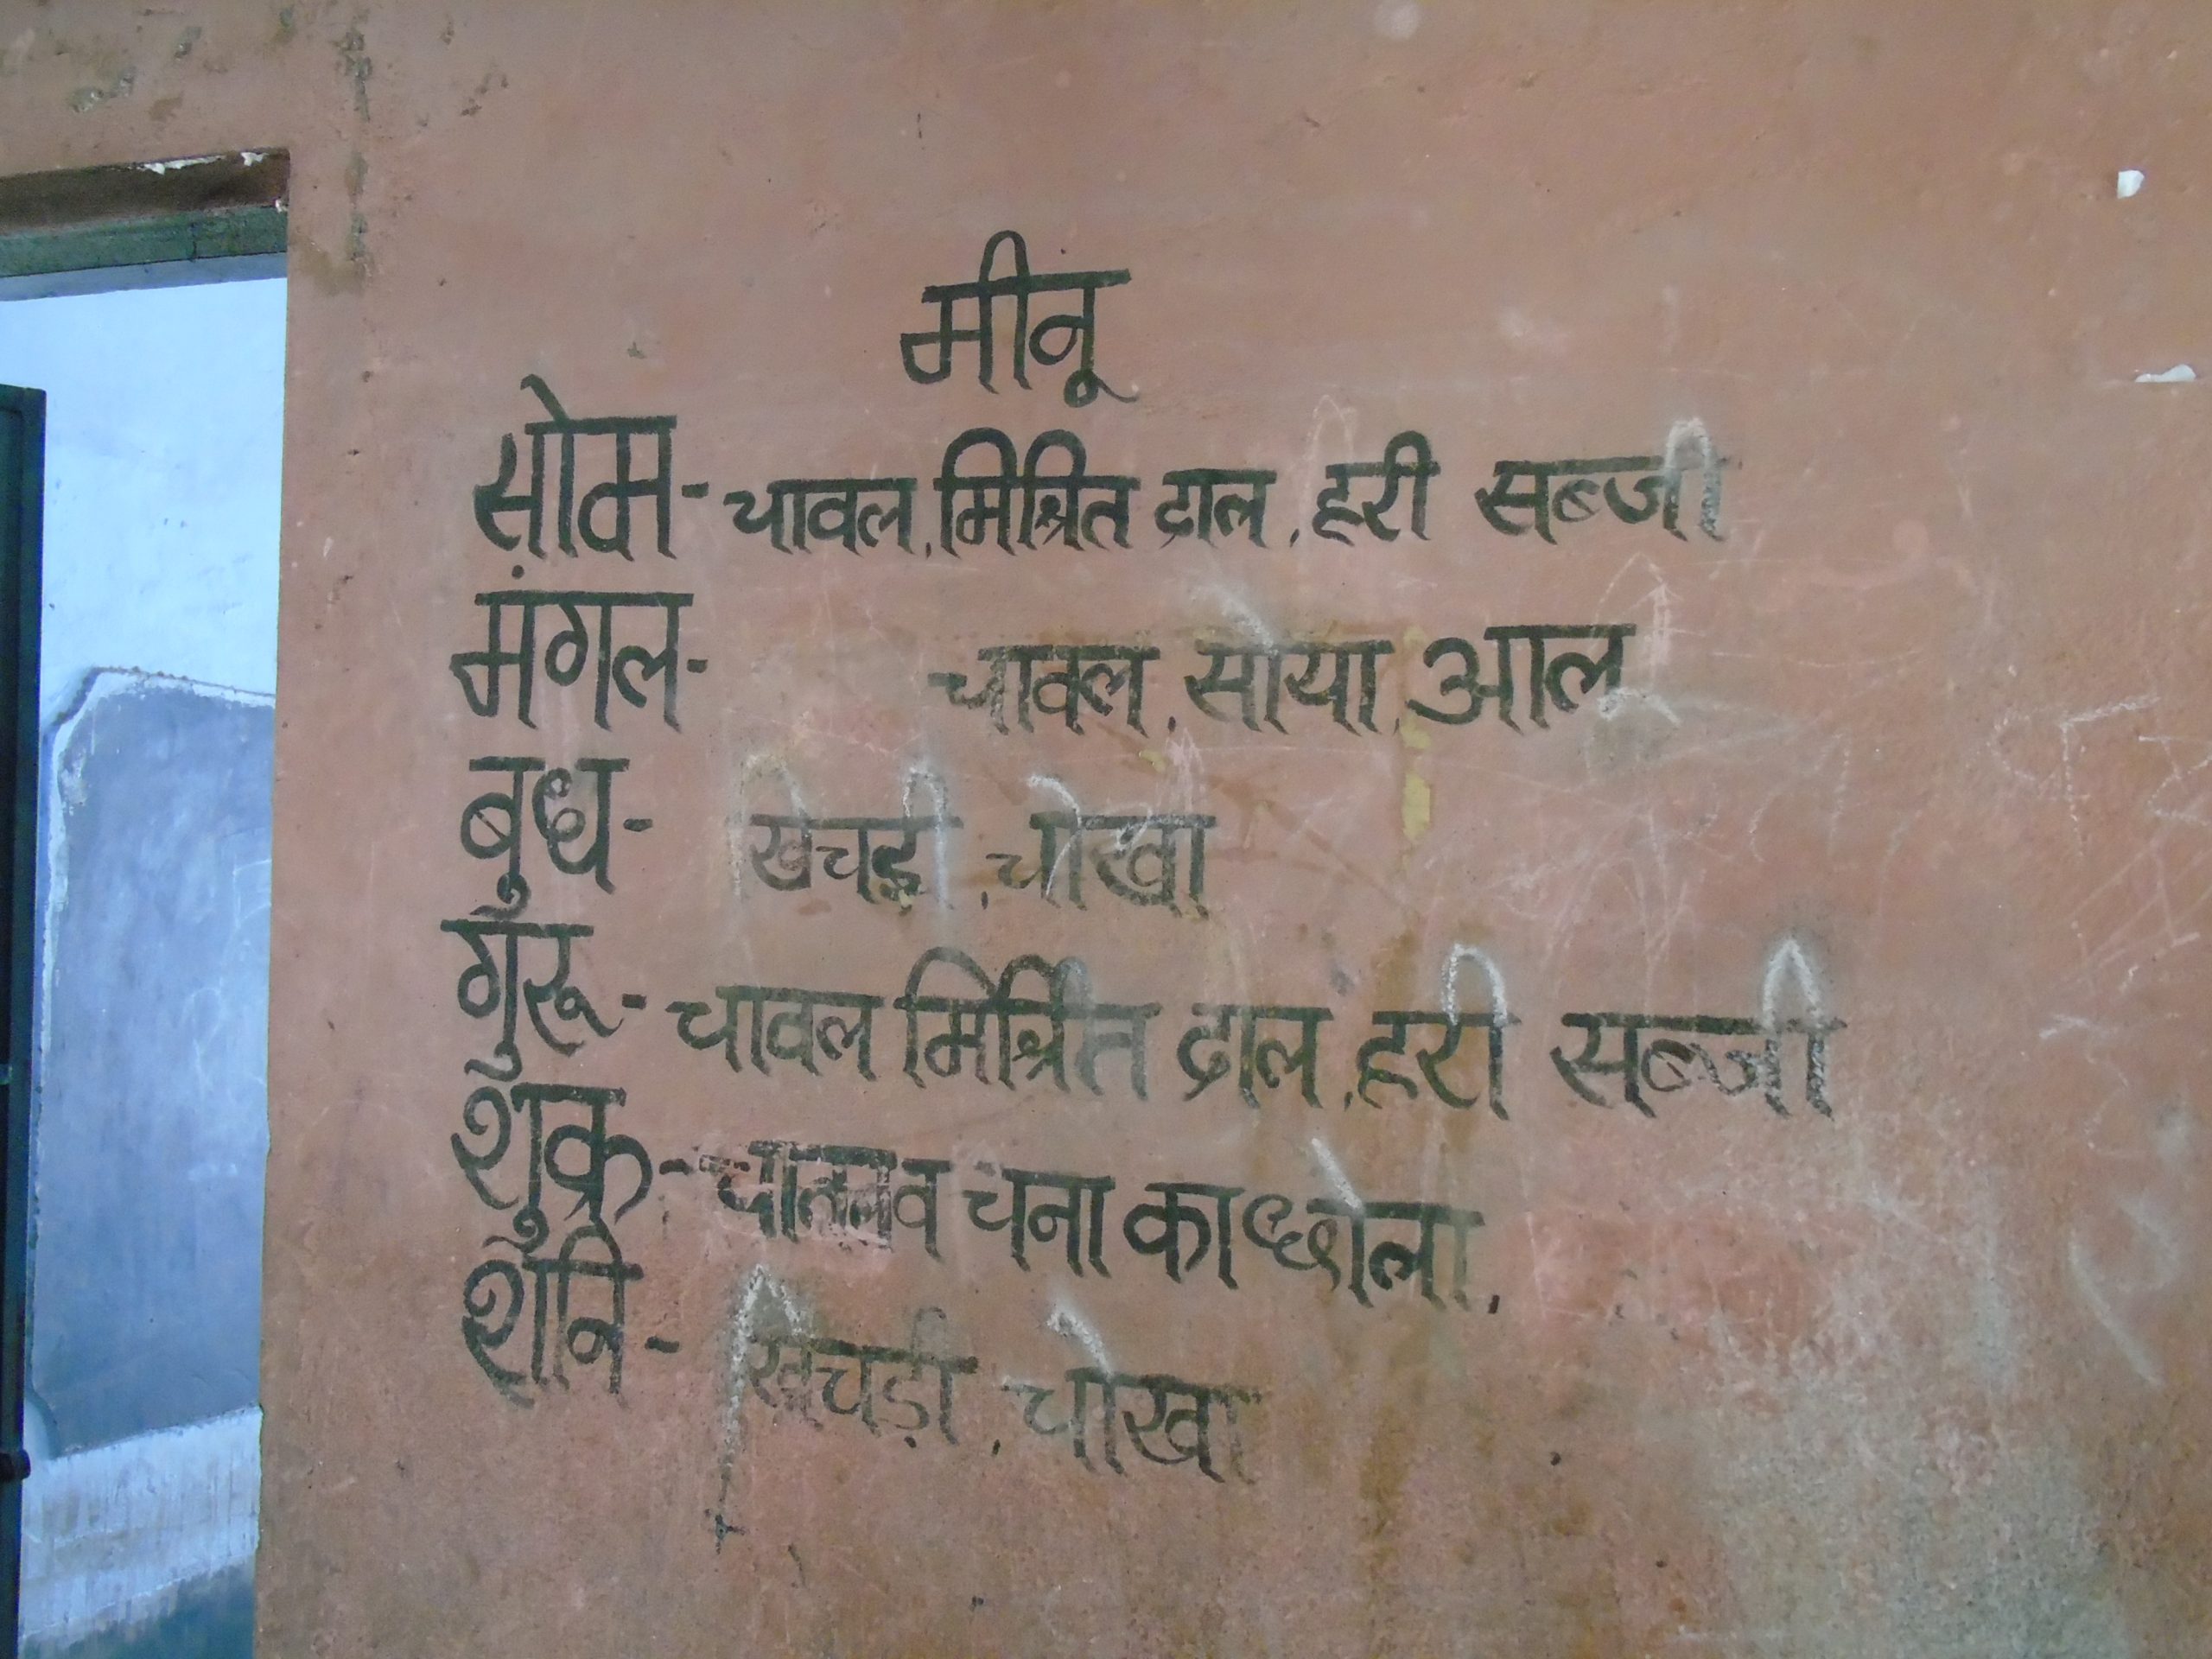 मीनू
सोम- चावल, मिश्रित दाल, हरी सब्जी
मंगल- चावल, सोया, आलू
बुध- खिचड़ी, चोखा
गुरू- चावल मिर्श्रित दाल, हरी सब्जी
शुक्र- व चना का छोला,
शनि- खिचड़ी, चोखा